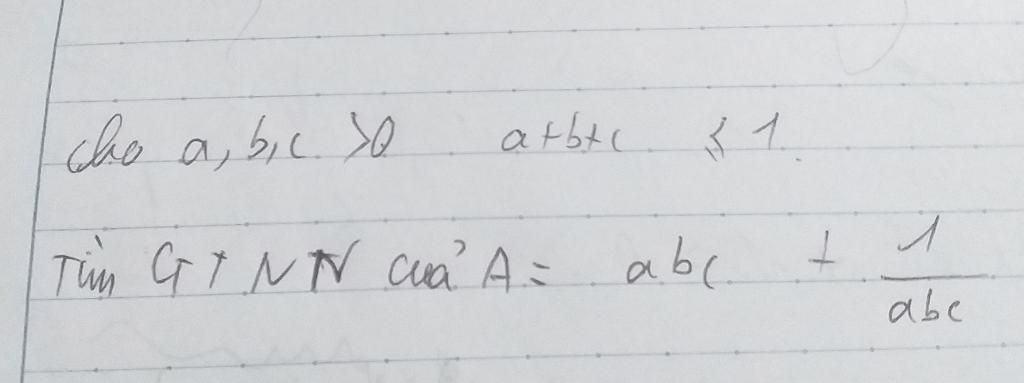 Cho a, b, c > 0 a + b + c ≤ 1.
Tìm GTNN của A = abc + 1/abc